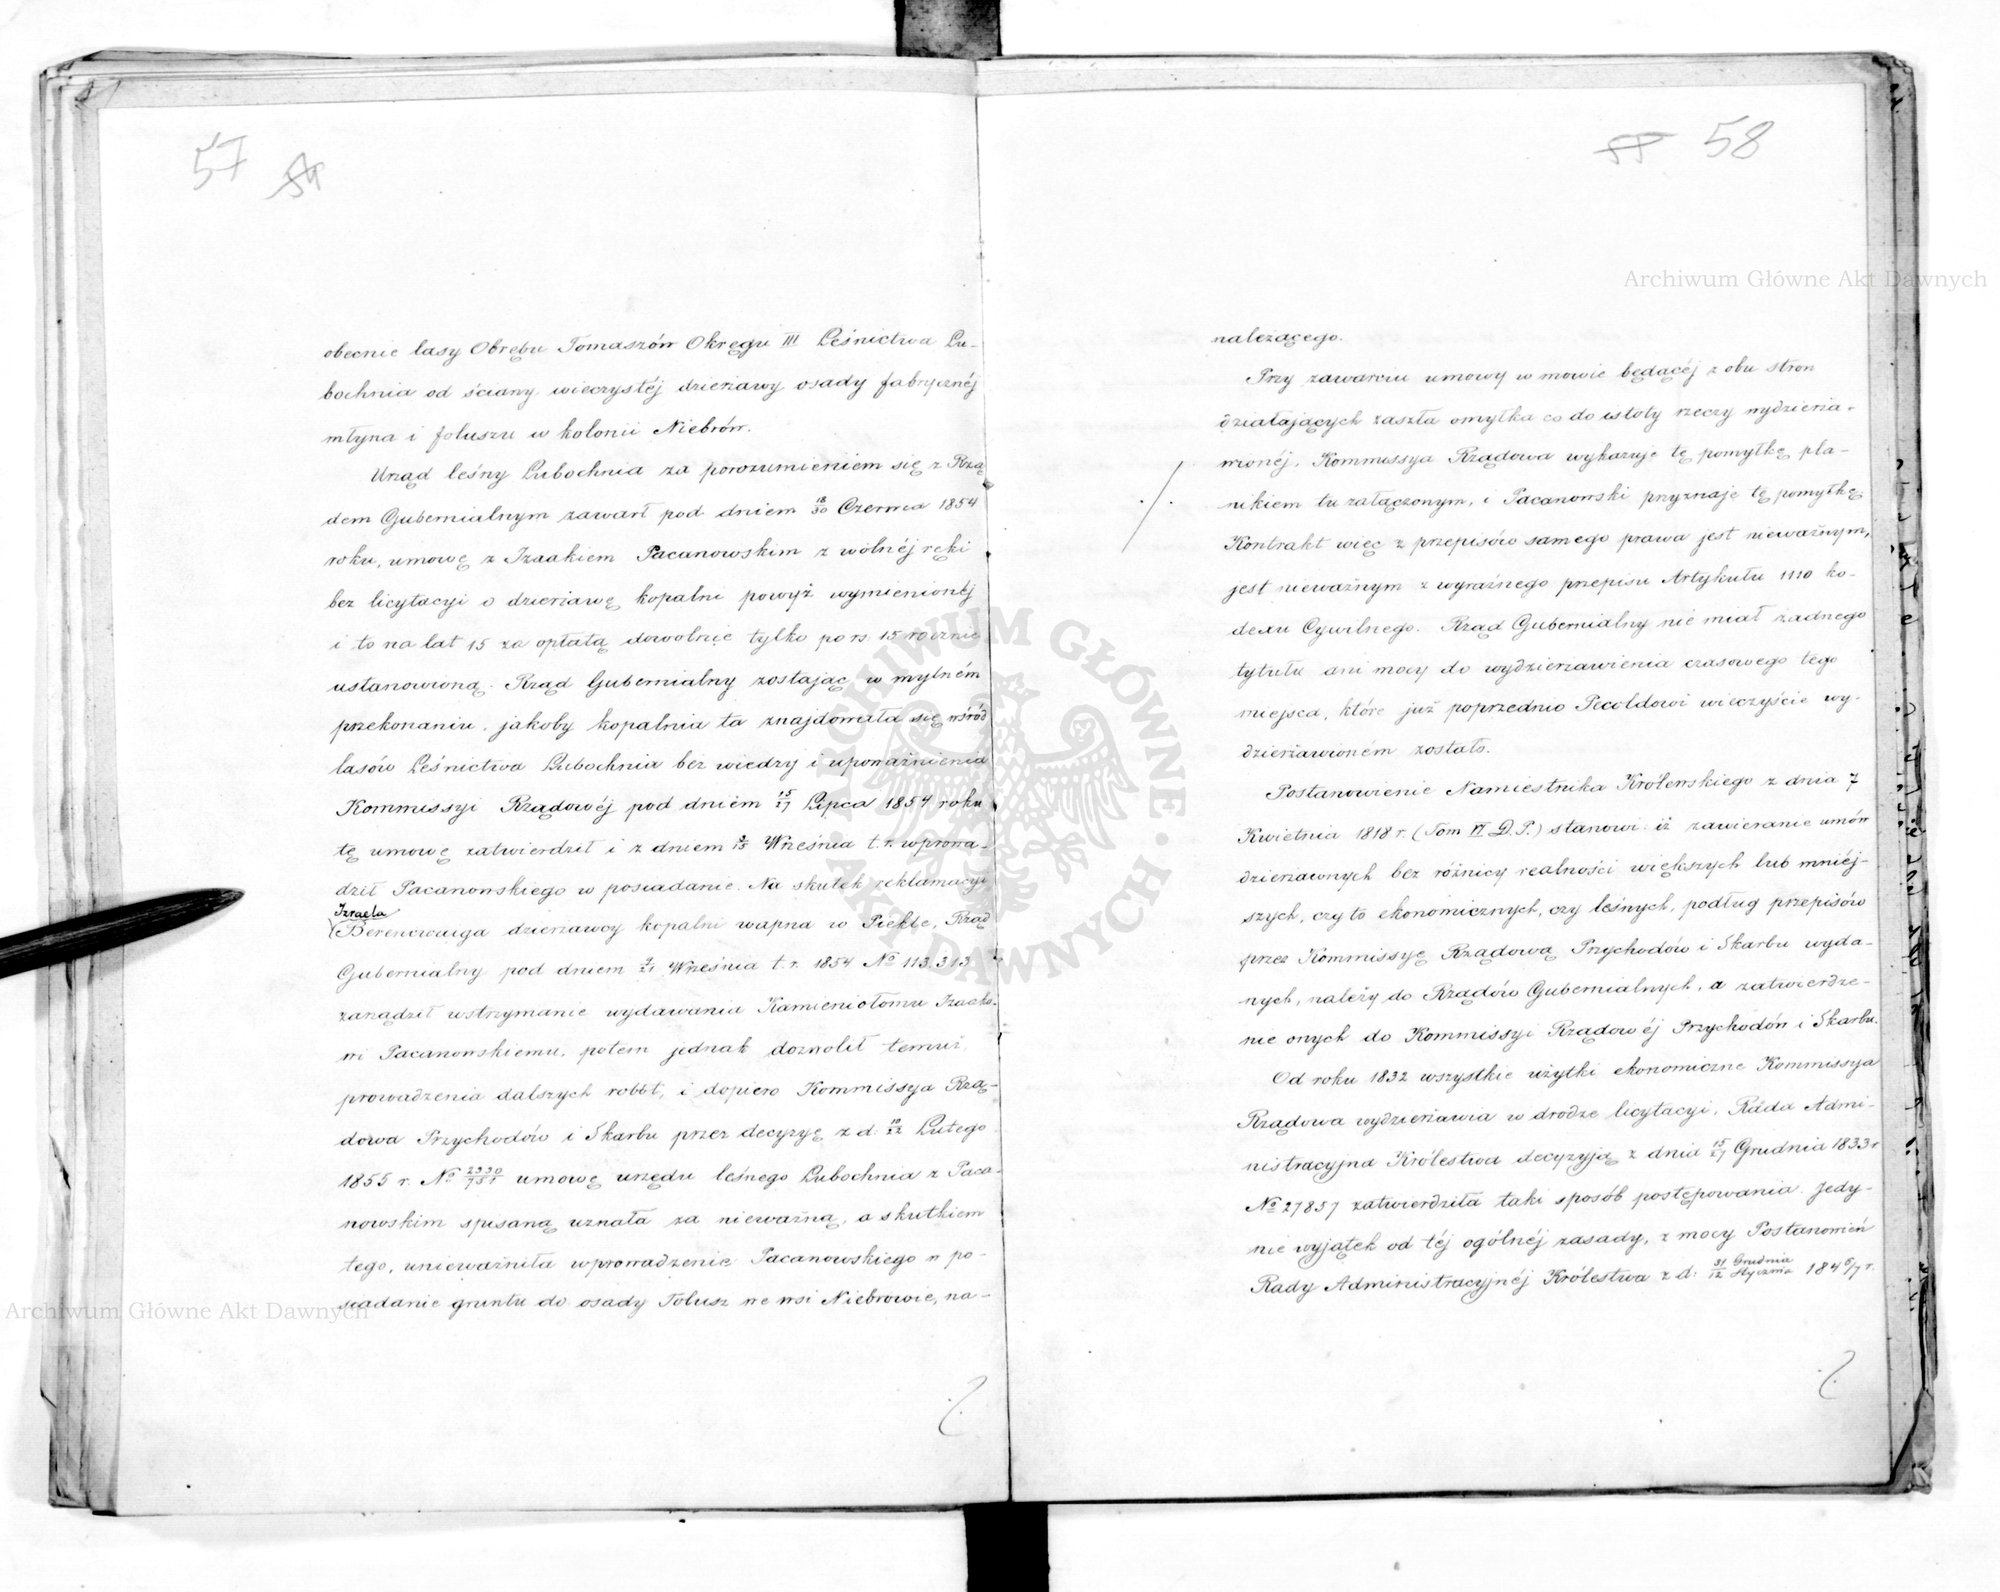 57
58
obecnie lasy Obrębu Tomaszów Okręgu III Leśnictwa Lu-
bochnia od ściany wieczystéj dzierżawy osady fabrycznéj
młyna i foluszu w kolonii Niebrów.
Urząd leśny Lubochnia za porozumieniem się z Rzą
dem Gubernialnym zawarł pod dniem 18/30 Czerwca 1854
roku, umowę z Izaakiem Pacanowskim z wolnéj ręki
bez licytacyi o dzierżawę kopalni powyż wymienionéj
i to na lat 15 za opłatą dowolnie tylko po rs. 15 rocznie
ustanowioną. Rząd Gubernialny zostając w mylném
przekonaniu, jakoby kopalnia ta znajdowała się wśród
lasów Leśnictwa Lubochnia bez wiedzy i upoważnienia
Kommissyi Rządowéj pod dniem 15/27 Lipca 1854 roku
tę umowę zatwierdził i z dniem 3/15 Września t. r. wprowa-
dził Pacanowskiego w posiadanie. Na skutek reklamacyi
Izraela
Berencwaiga dzierżawcy kopalni wapna w Piekle, Rząd
Gubernialny pod dniem 9/21 Września t. r. 1854 No 113.313
zarządził wstrzymanie wydawania Kamieniołomu Izaako-
wi Pacanowskiemu, potem jednak dozwolił temuż
prowadzenia dalszych robót, i dopiero Kommissya Rzą-
dowa Przychodów i Skarbu przez decyzyę z d. 10/22 Lutego
1855 r. No umowę urzędu leśnego Lubochnia z Paca-
nowskim spisaną uznała za nieważną, a skutkiem
tego, unieważniła wprowadzenie Pacanowskiego w po-
siadanie gruntu do osady Folusz we wsi Niebrowie, na-
należącego.
Przy zawarciu umowy w mowie będącéj z obu stron
działających zaszła omyłka co do istoty rzeczy wydzierża-
wionéj. Kommissya Rządowa wykazuje tę pomyłkę pla-
nikiem tu załączonym, i Pacanowski przyznaje tę pomyłkę
Kontrakt więc z przepisów samego prawa jest nieważnym,
jest nieważnym z wyraźnego przepisu Artykułu 1110 ko-
dexu Cywilnego. Rząd Gubernialny nie miał żadnego
tytułu ani mocy do wydzierżawienia czasowego tego
miejsca, które już poprzednio Pecoldowi wieczyście wy-
dzierżawioném zostało.
Postanowienie Namiestnika Królewskiego z dnia 7
Kwietnia 1818 r. (Tom VI D. P.) stanowi: iż zawieranie umów
dzierżawnych bez różnicy realności większych lub mniéj-
szych, czy to ekonomicznych, czy leśnych, podług przepisów
przez Kommissyę Rządową Przychodów i Skarbu wyda-
nych, należy do Rządów Gubernialnych, a zatwierdze-
nie onych do Kommissyi Rządowéj Przychodów i Skarbu.
Od roku 1832 wszystkie użytki ekonomiczne Kommissya
Rządowa wydzierżawia w drodze licytacyi, Rada Admi-
nistracyjna Królestwa decyzyją z dnia 15/27 Grudnia 1833 r
No 27857 zatwierdziła taki sposób postępowania. Jedy-
nie wyjątek od téj ogólnéj zasady, z mocy Postanowień
Rady Administracyjnéj Królestwa z d. 31 Grudnia/12 Stycznia 1846/7 r.
Archiwum Główne Akt Dawnych
Archiwum Główne Akt Dawnych
ARCHIWUM GŁÓWNE AKT DAWNYCH